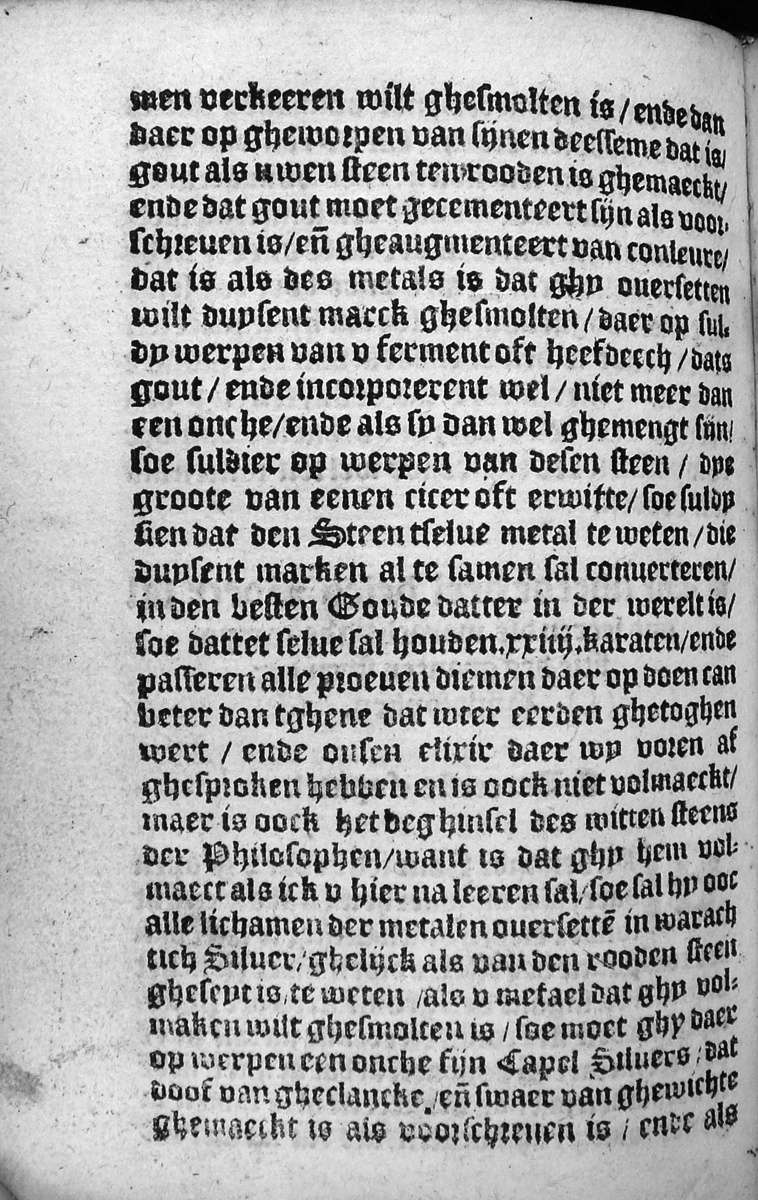 men verkeeren wilt ghesmolten is / ende dan
daer op gheworpen van sijnen deesseme dat is/
gout als uwen steen ten rooden is ghemaeckt/
ende dat gout moet gecementeert sijn als voor-
schreuen is/eñ gheaugmenteert van couleure/
dat is als des metals is dat ghy ouersetten
wilt duysent marck ghesmolten / daer op sul-
dy werpen van v ferment oft heefdeech / dats
gout / ende incorporerent wel / niet meer dan
een onche/ende als sy dan wel ghemengt sijn/
soe suldier op werpen van desen steen / dye
groote van eenen cicer oft erwitte/ soe suldy
sien dat den Steen tselue metal te weten / die
duysent marken al te samen sal conuerteren/
in den besten Goude datter in der werelt is/
soe dattet selue sal houden.xxiiij.karaten/ende
passeren alle proeuen diemen daer op doen can
beter dan tghene dat wter eerden ghetoghen
wert / ende onsen elixir daer wy voren af
ghesproken hebben en is oock niet volmaeckt/
maer is oock het beghinsel des witten steens
der Philosophen/want is dat ghy hem vol-
maect als ick v hier na leeren sal/soe sal hy ooc
alle lichamen der metalen ouersettē in warach
tich Siluer/ghelijck als van den rooden steen
gheseyt is, te weten /als v metael dat ghy vol-
maken wilt ghesmolten is / soe moet ghy daer
op werpen een onche fijn Capel Siluers / dat
doof van gheclancke, eñ swaer van ghewichte
ghemaeckt is als voorschreuen is / ende als